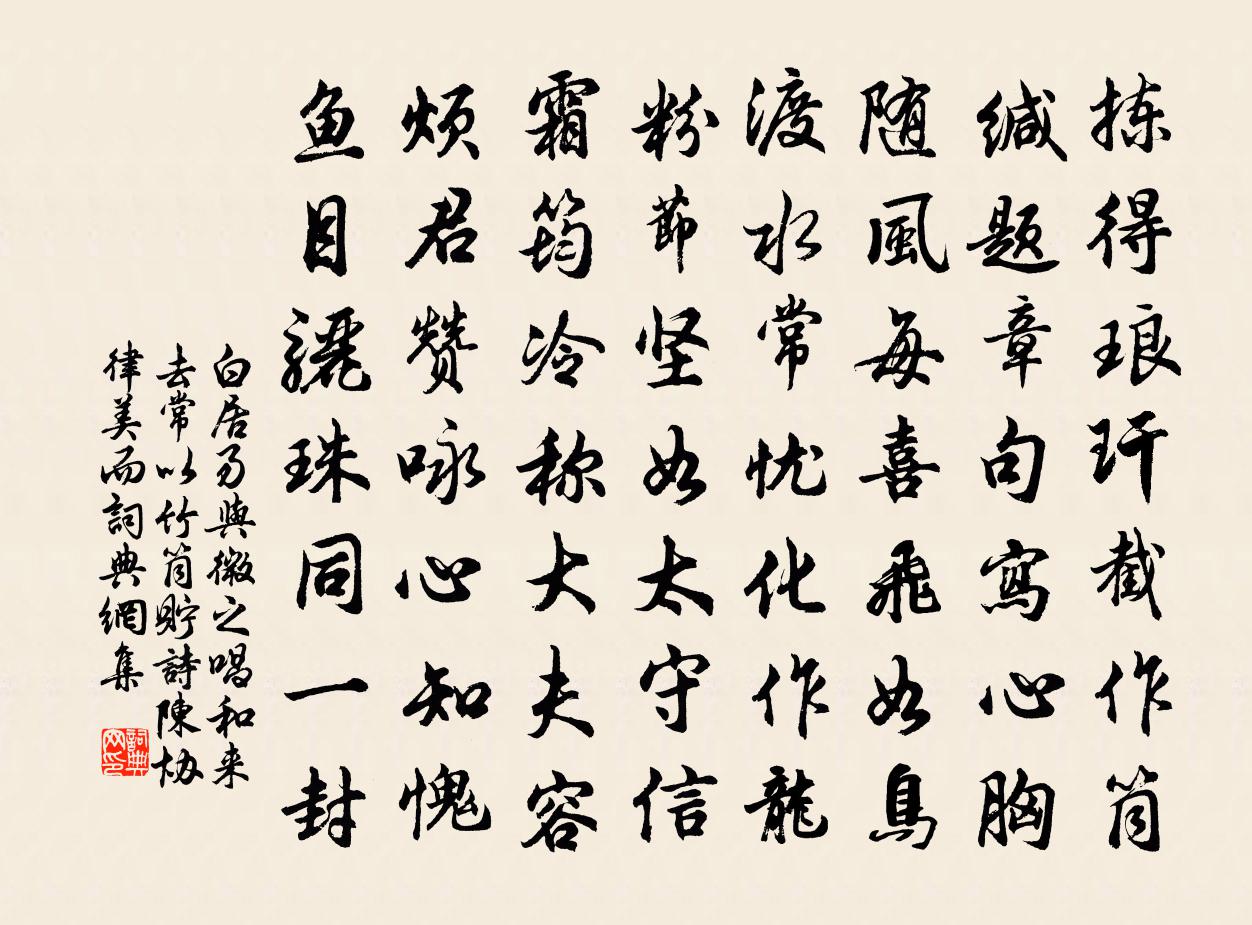 拣得琅玕截作筒
缄题章句寫心胸
随風每喜飛如鳥
渡水常忧化作龍
粉節坚如太守信
霜筠冷称大夫容
烦君赞咏心知愧
鱼目骊珠同一封
白居易與微之唱和来
去常以竹筒貯詩陳协
律美而詞典網集
詞典网印